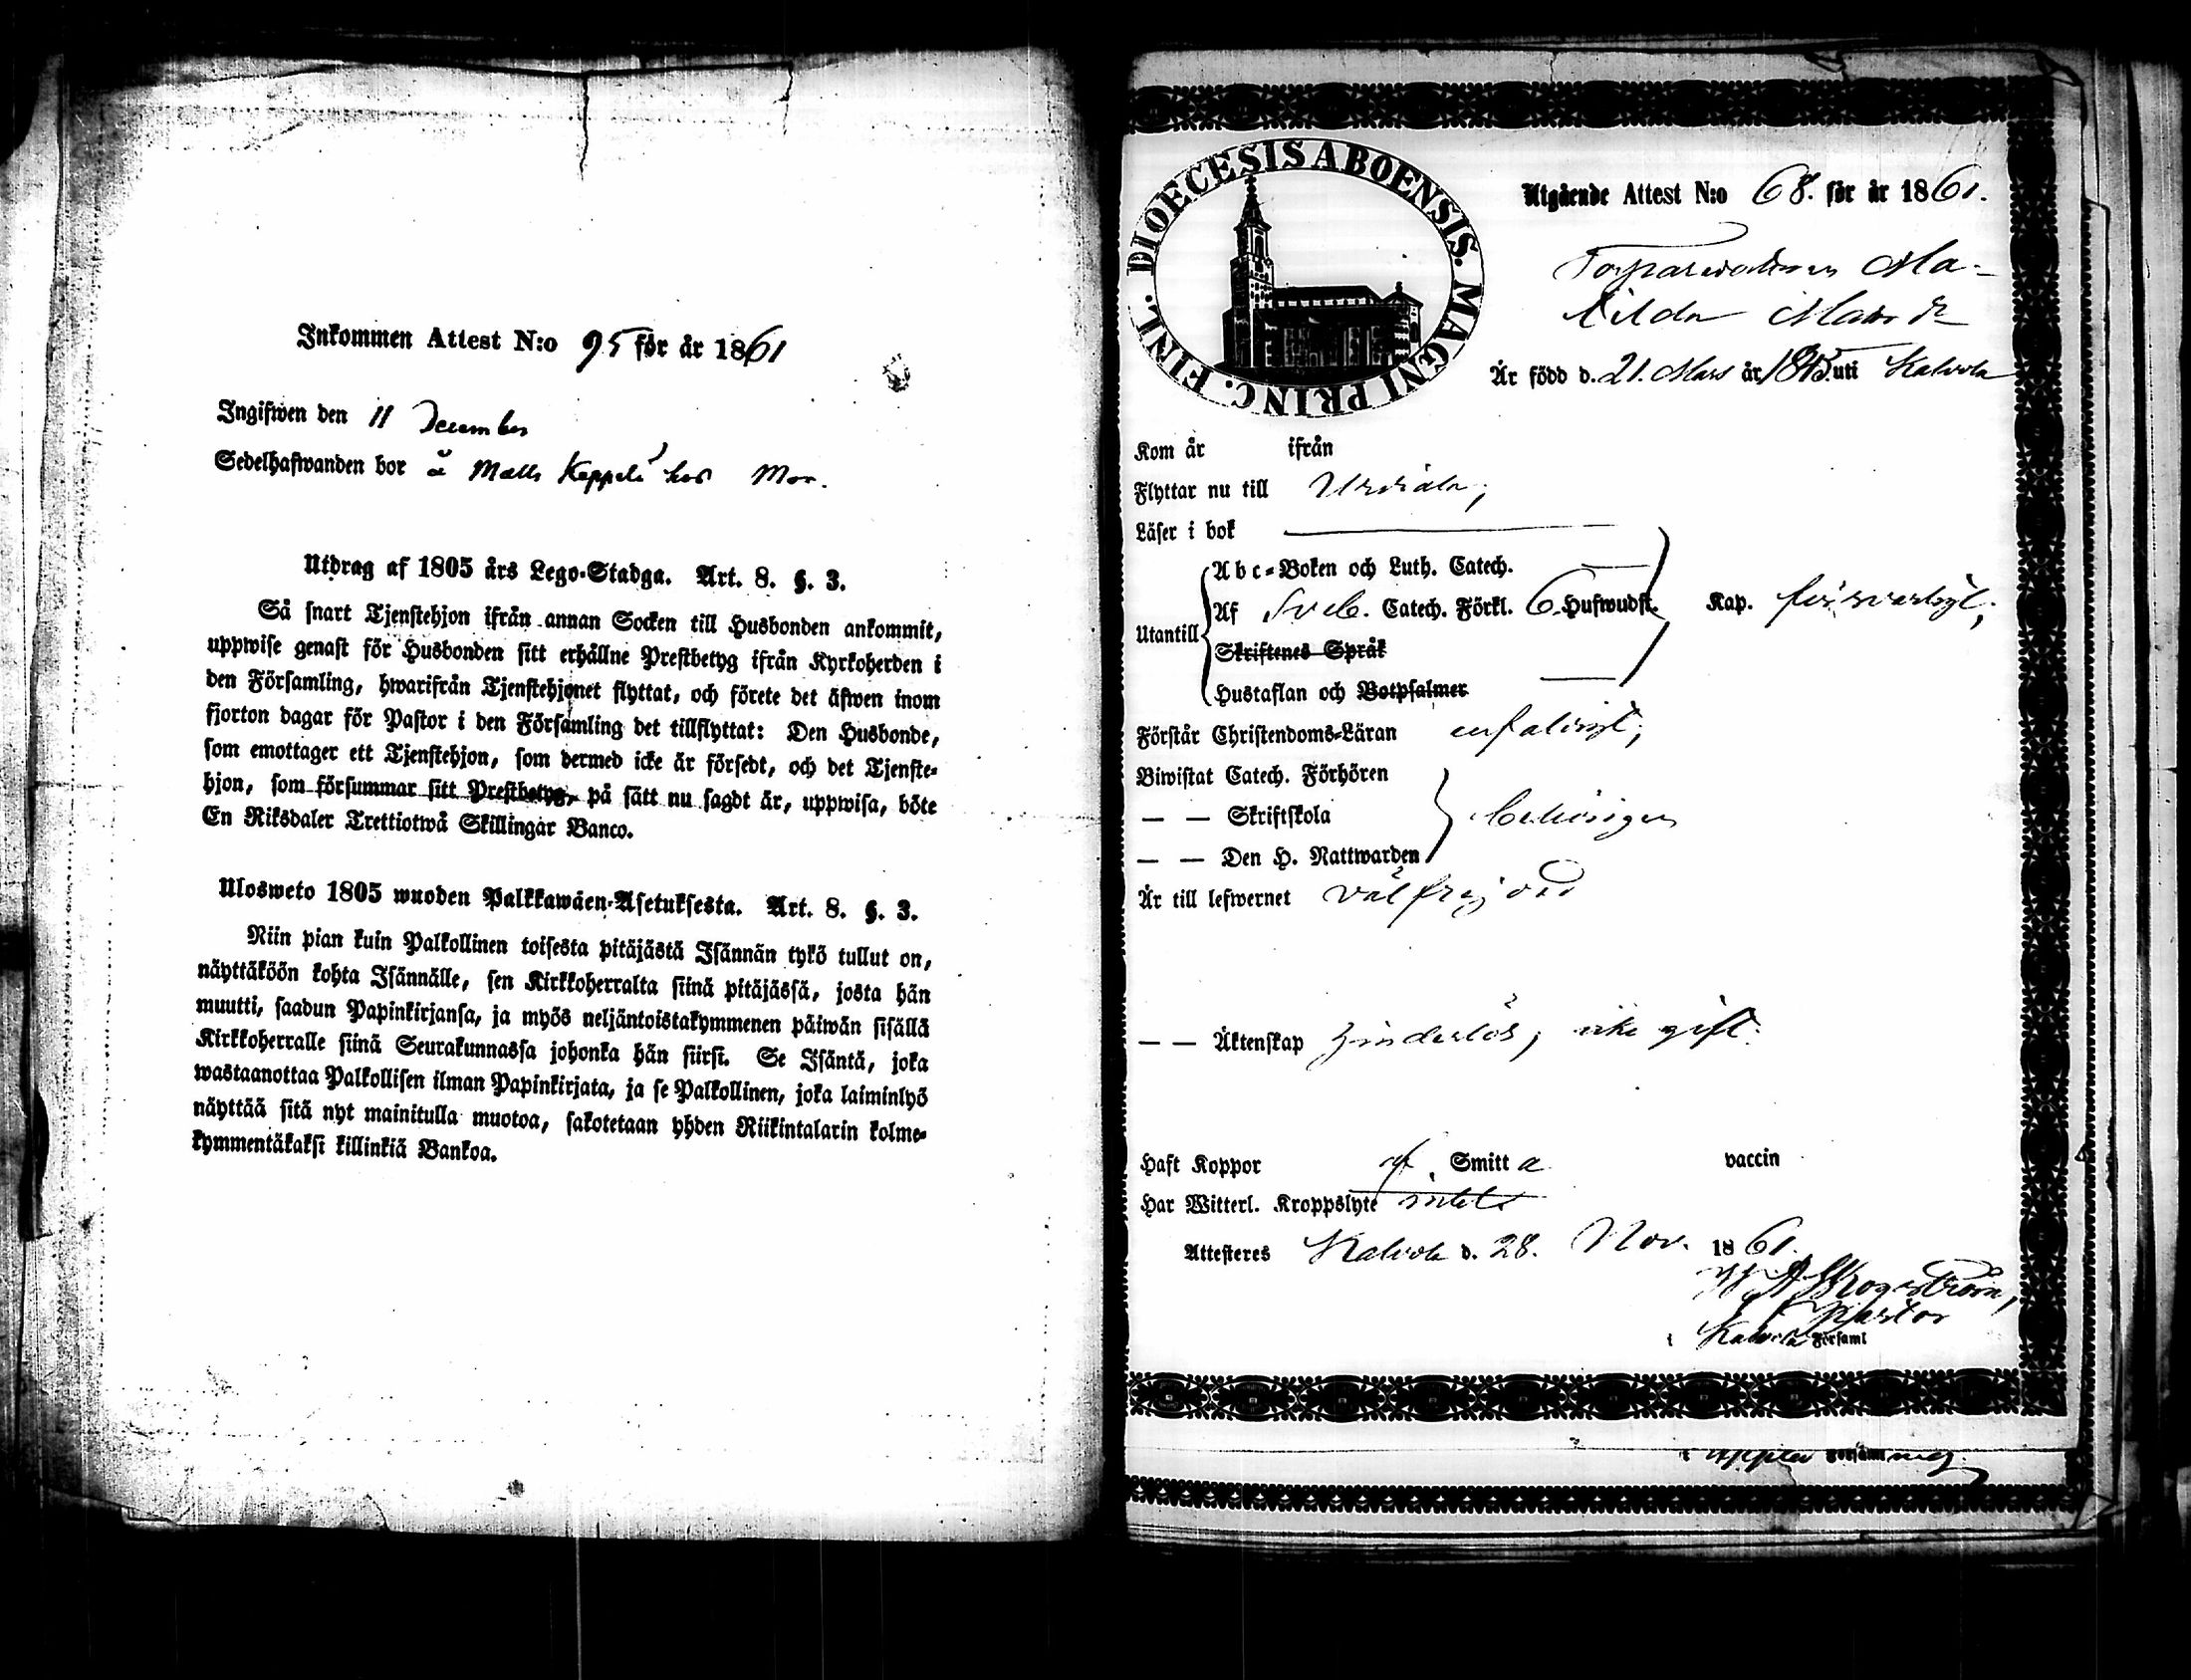 Inkommen Attest N:o 95 för år 1861
Ingifwen den 11 December
Sedelhafwanden bor å Matts Keppilä hos Mor.
Utdrag af 1805 års Lego-Stadga. Art. 8. §. 3.
Så snart Tjenstehjon ifrån annan Socken till Husbonden ankommit,
uppwise genast för Husbonden sitt erhållne Prestbetyg ifrån Kyrkoherden i
den Församling, hwarifrån Tjenstehjonet flyttat, och förete det äfwen inom
fjorton dagar för Pastor i den Församling det tillflyttat: Den Husbonde,
som emottager ett Tjenstehjon, som dermed icke är försedt, och det Tjenste-
hjon, som försummar sitt Prestbetyg, på sätt nu sagdt är, uppwisa, böte
En Riksdaler Trettiotwå Skillingar Banco.
Ulosweto 1805 wuoden Palkkawäen-Asetuksesta. Art. 8. §. 3.
Niin pian kuin Palkollinen toisesta pitäjästä Isännän tykö tullut on,
näyttäköön kohta Isännälle, sen Kirkkoherralta siinä pitäjässä, josta hän
muutti, saadun Papinkirjansa, ja myös neljäntoistakymmenen päiwän sisällä
Kirkkoherralle siinä Seurakunnassa johonka hän siirsi. Se Isäntä, joka
wastaanottaa Palkollisen ilman Papinkirjata, ja se Palkollinen, joka laiminlyö
näyttää sitä nyt mainitulla muotoa, sakotetaan yhden Riikintalarin kolme-
kymmentäkaksi killinkiä Bankoa.
DIOECESIS ABOENSIS. MAGNI PRINC. FINL.
Utgående Attest N:o 68. för år 1861.
Torpardottren Ma-
tilda Matsdr
Är född d. 21. Mars år 1845. uti Kalvola
Kom år ifrån
Flyttar nu till Urdiala,
Läser i bok
Abc-Boken och Luth. Catech.
Utantill Af Sveb. Catech. Förkl. 6 Hufwudst. Kap. försvarligt;
Skriftenes Språk
Hustaflan och Botpsalmer
Förstår Christendoms-Läran enfaldigt;
Biwistat Catech. Förhören
— — Skriftskola behörigen
— — Den H. Nattwarden
Är till lefwernet välfrejdad
— — Äktenskap hinderlös, icke gift.
Haft Koppor af Smitta vaccin
Har Witterl. Kroppslyte intet
Attesteres Kalvola d. 28. Nov. 1861.
Pastor
i Kalvola Församl